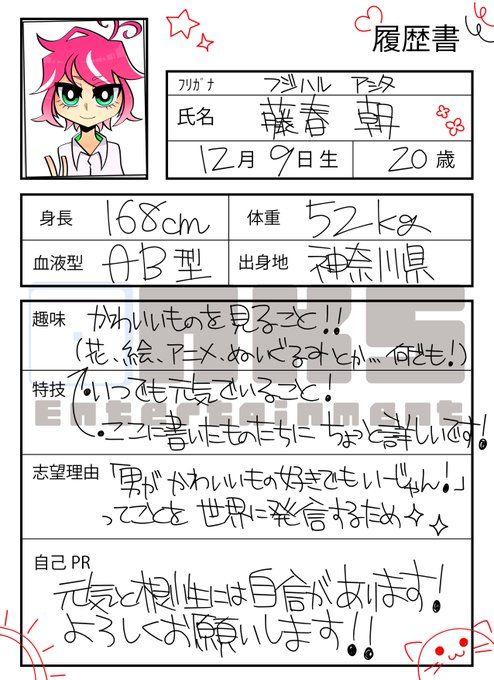 履歴書
フリガナ フジハル アシタ
氏名 藤春 朝
12月9日生 20歳
身長 168cm 体重 52kg
血液型 AB型 出身地 神奈川県
趣味 かわいいものを見ること!!
(花、絵、アニメ、ぬいぐるみとか…何でも!)
特技 ・いつでも元気でいること!
・ここに書いたものたちにちょっと詳しいです!
Entertainment
志望理由 「男がかわいいもの好きでもいーじゃん!」
ってことを世界に発信するため
自己PR
元気と根性には自信があります!
よろしくお願いします!!